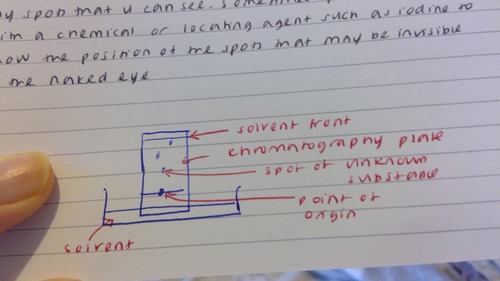 spot that u can see.
a chemical or locating agent such as iodine to
the position of the spot that may be invisible
the naked eye
solvent front
chromatography plate
spot of unknown
substance
point of
origin
solvent